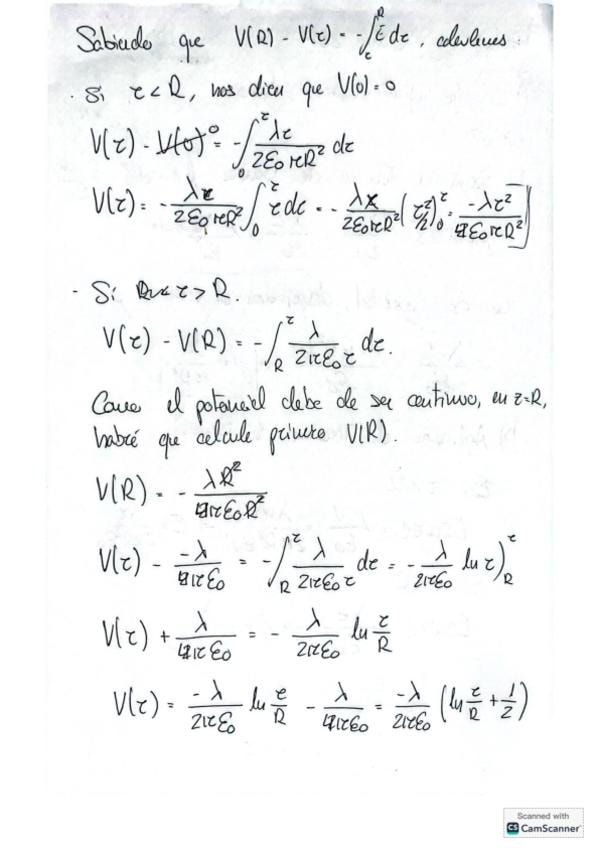 Sabiendo que V(R) - V(r) = -∫_r^R E dr, calculemos
· Si r < R, nos dicen que V(0) = 0
V(r) - V(0)^0 = -∫_0^r λr/(2ε₀πR²) dr
V(r) = -λ/(2ε₀πR²) ∫_0^r r dr = -λ/(2ε₀πR²) (r²/2)_0^r = -λr²/(4ε₀πR²)
- Si r > R.
V(r) - V(R) = -∫_R^r λ/(2πε₀r) dr.
Como el potencial debe de ser continuo, en r=R,
habrá que calcular primero V(R).
V(R) = -λR²/(4πε₀R²)
V(r) - -λ/(4πε₀) = -∫_R^r λ/(2πε₀r) dr = -λ/(2πε₀) ln r)_R^r
V(r) + λ/(4πε₀) = -λ/(2πε₀) ln r/R
V(r) = -λ/(2πε₀) ln r/R - λ/(4πε₀) = -λ/(2πε₀) (ln r/R + 1/2)
Scanned with
CS CamScanner